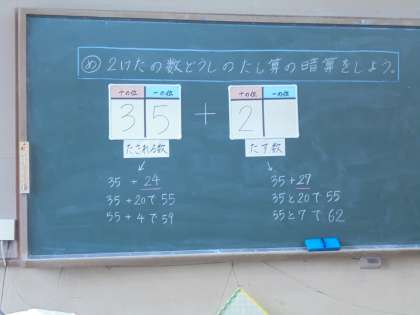 め 2けたの数どうしのたし算の暗算をしよう。
十の位 一の位 十の位 一の位
3 5 + 2
たされる数 たす数
35 + 24
35+20で 55
55+4で 59
35+27
35と20で 55
55と7で 62